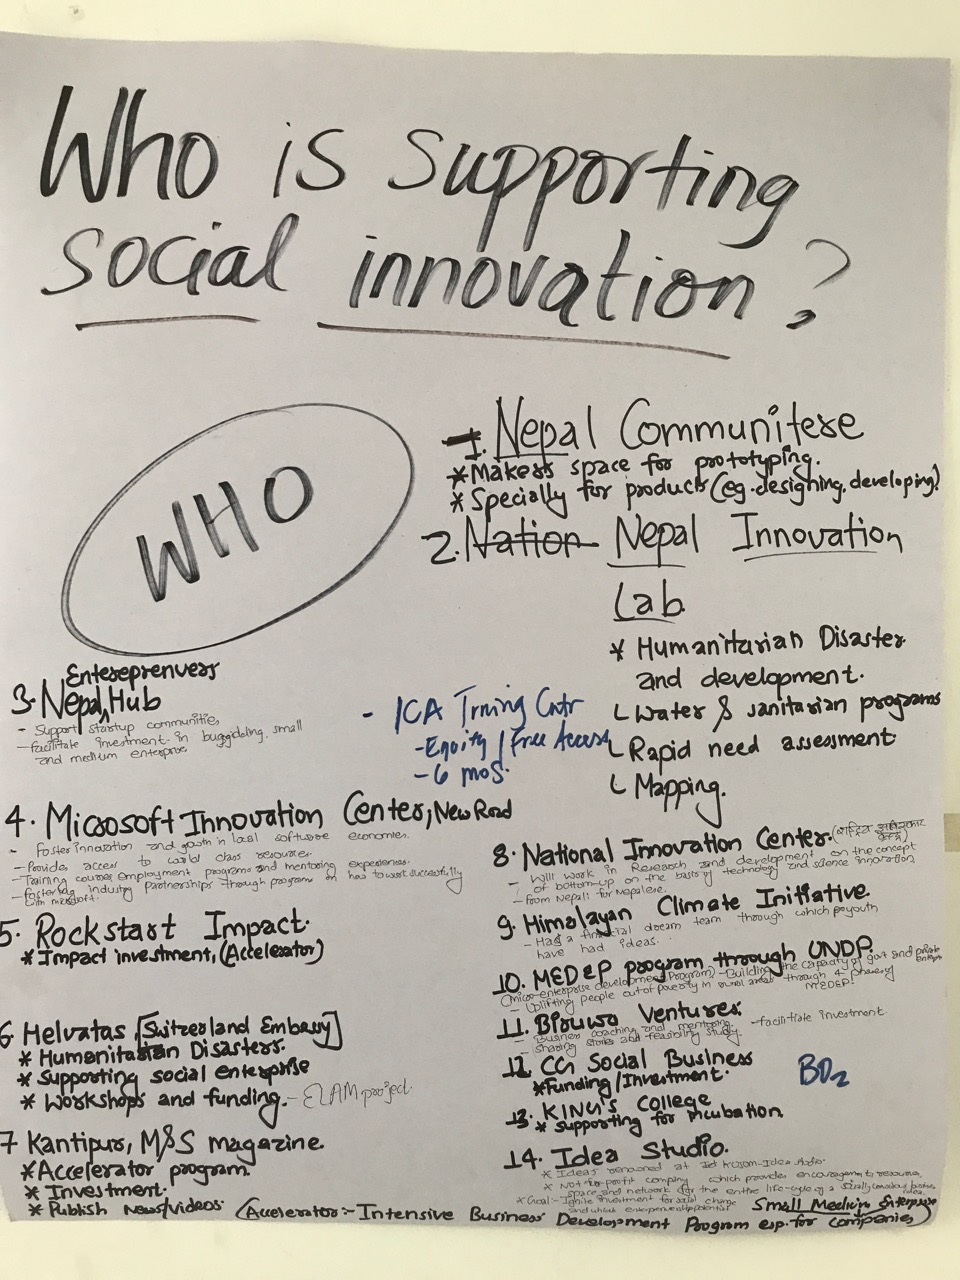 Who is supporting
social innovation?
WHO
1. Nepal Communitere
* Makers space for prototyping.
* Specially for products (eg. designing, developing)
2. Nation Nepal Innovation
Lab
* Humanitarian Disaster
and development.
Water & sanitarian programs
Rapid need assessment
Mapping.
3. Nepal Entreprenuers Hub
- Support startup communities
- facilitate investment in small
and medium enterprise
- ICA Trning Cntr
- Equity / Free Access
- 6 mos.
4. Microsoft Innovation Center, New Road
- Foster innovation and growth in local software economies.
- Provides access to world class resources.
- Training courses, employment programs and mentoring
- Fostering industry partnerships through programs
with microsoft.
5. Rockstart Impact.
* Impact investment, (Accelerator)
6 Helvatas [Switzerland Embassy]
* Humanitarian Disasters.
* Supporting social enterprise
* Workshops and funding. - ELAM project.
7 Kantipur, M&S magazine
* Accelerator program.
* Investment.
* Publish News/videos (Accelerator :- Intensive Business Development Program esp. for companies)
8. National Innovation Center.
- Will work in Research and development on the concept
of bottom-up on the basis of technology and science innovation
- From Nepali for Nepalese.
9. Himalayan Climate Initiative
- Has a dream team through which youth
have had ideas.
10. MEDEP program through UNDP.
(micro-enterprise development Program) - Building the capacity of govt and private
- Uplifting people out of poverty in rural areas through MEDEP.
11. Biruwa Ventures
- Business coaching and mentoring - facilitiate investment
- sharing stories and feasibility study.
12 CG Social Business
* Funding/Investment.
BD2
13. KING's College
* supporting for incubation
14. Idea Studio.
* Not for profit company which provides encouragement, resource,
space and network for the entire life-cycle of a
* Goal:- Ignite investment for social change
Small Medium Enterprise